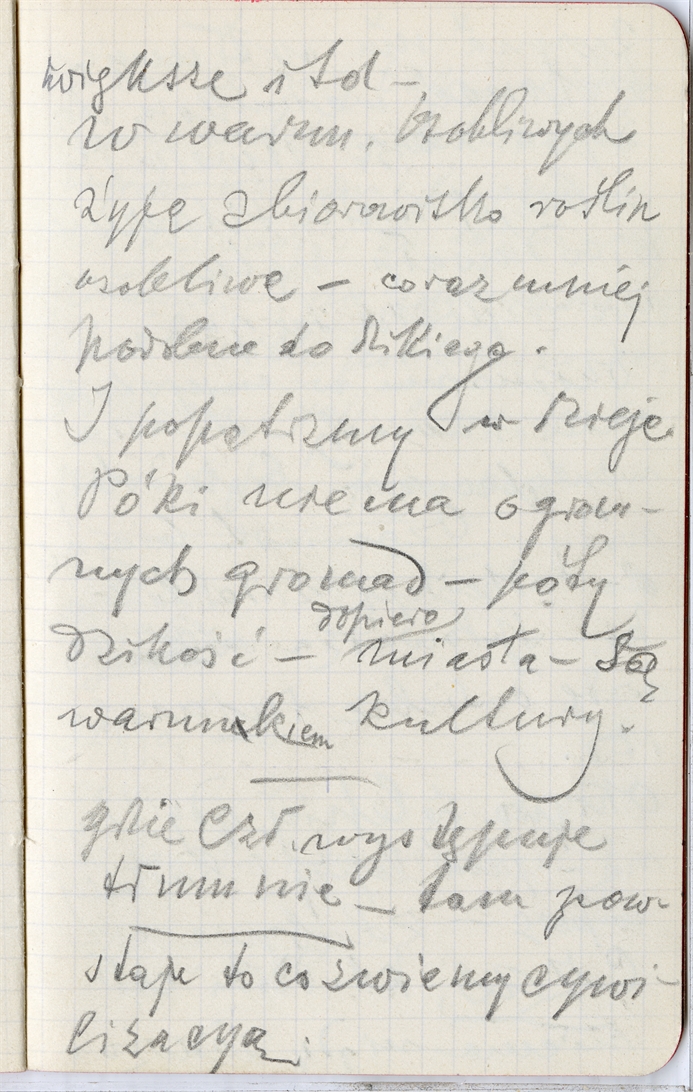 większe i td –
w warun. osobliwych
żyje zbiorowisko roślin
osobliwe – coraz mniej
podobne do dzikiego.
I popatrzmy w dzieje.
Póki nie ma ogrom-
nych gromad – póty
dzikość – dopiero miasta – są
warunkiem kultury.
gdzie czł. występuje
tłumnie – tam pow-
staje to co zwiemy cywi-
lizacyą.